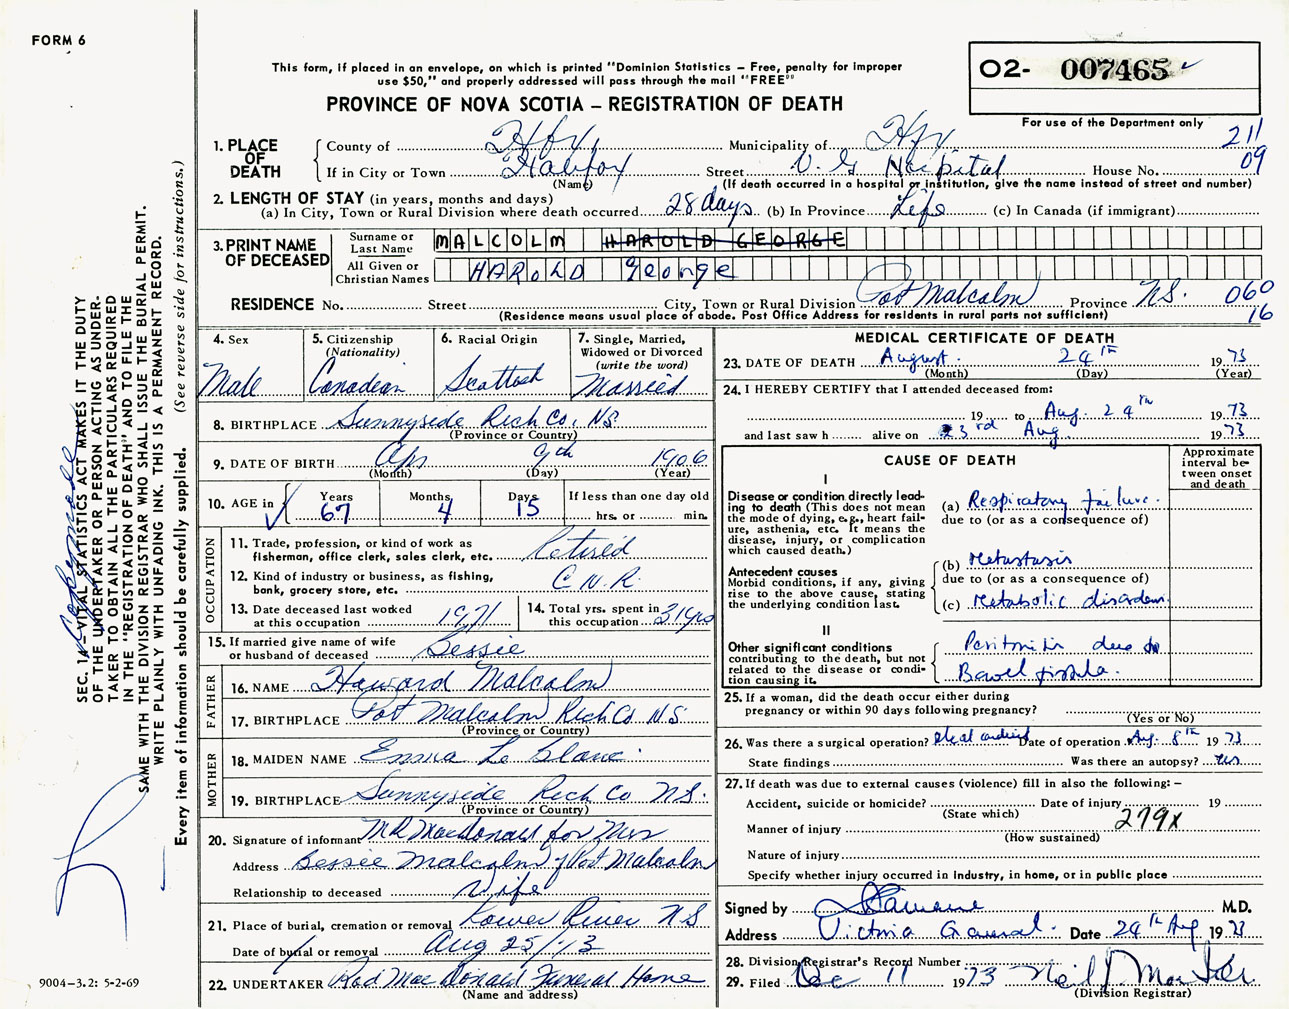 FORM 6
This form, if placed in an envelope, on which is printed "Dominion Statistics – Free, penalty for improper
use $50," and properly addressed will pass through the mail "FREE"
O2- 007465
PROVINCE OF NOVA SCOTIA – REGISTRATION OF DEATH
For use of the Department only
211
09
1. PLACE OF DEATH
County of Hfx. Municipality of Hfx.
If in City or Town Halifax Street V. G Hospital House No.
(Name) (If death occurred in a hospital or institution, give the name instead of street and number)
2. LENGTH OF STAY (in years, months and days)
(a) In City, Town or Rural Division where death occurred 28 days (b) In Province Life (c) In Canada (if immigrant)
3. PRINT NAME OF DECEASED
Surname or Last Name MALCOLM HAROLD GEORGE
All Given or Christian Names HAROLD George
RESIDENCE No. Street City, Town or Rural Division Port Malcolm Province N.S. 060
(Residence means usual place of abode. Post Office Address for residents in rural parts not sufficient) 16
4. Sex Male
5. Citizenship (Nationality) Canadian
6. Racial Origin Scottish
7. Single, Married, Widowed or Divorced (write the word) Married
8. BIRTHPLACE Sunnyside Rich Co, N.S.
(Province or Country)
9. DATE OF BIRTH Apr 9th 1906
(Month) (Day) (Year)
10. AGE in Years 67 Months 4 Days 15 If less than one day old
hrs. or min.
OCCUPATION
11. Trade, profession, or kind of work as fisherman, office clerk, sales clerk, etc. Retired
12. Kind of industry or business, as fishing, bank, grocery store, etc. C.N.R.
13. Date deceased last worked at this occupation 1971
14. Total yrs. spent in this occupation 31 yrs
15. If married give name of wife or husband of deceased Bessie
FATHER
16. NAME Howard Malcolm
17. BIRTHPLACE Port Malcolm Rich Co N.S.
(Province or Country)
MOTHER
18. MAIDEN NAME Emma Le Blanc
19. BIRTHPLACE Sunnyside Rich Co N.S.
(Province or Country)
20. Signature of informant MR MacDonald for Mrs
Address Bessie Malcolm Port Malcolm
Relationship to deceased Wife
21. Place of burial, cremation or removal Lower River N S
Date of burial or removal Aug 25/73
22. UNDERTAKER Rod MacDonald Funeral Home
(Name and address)
MEDICAL CERTIFICATE OF DEATH
23. DATE OF DEATH August 24th 1973
(Month) (Day) (Year)
24. I HEREBY CERTIFY that I attended deceased from:
19 to Aug. 24th 1973
and last saw h alive on 23rd Aug. 1973
CAUSE OF DEATH
Approximate interval between onset and death
I
Disease or condition directly leading to death (This does not mean the mode of dying, e.g., heart failure, asthenia, etc. It means the disease, injury, or complication which caused death.)
(a) Respiratory failure.
due to (or as a consequence of)
Antecedent causes
Morbid conditions, if any, giving rise to the above cause, stating the underlying condition last.
(b) Metastasis
due to (or as a consequence of)
(c) Metabolic disorders.
II
Other significant conditions contributing to the death, but not related to the disease or condition causing it.
Peritonitis due to
Bowel fistula.
25. If a woman, did the death occur either during
pregnancy or within 90 days following pregnancy?
(Yes or No)
26. Was there a surgical operation? Date of operation Aug. 8th 1973
State findings Was there an autopsy? yes
27. If death was due to external causes (violence) fill in also the following: –
Accident, suicide or homicide? Date of injury 19
(State which)
Manner of injury 279x
(How sustained)
Nature of injury
Specify whether injury occurred in industry, in home, or in public place
Signed by M.D.
Address Victoria General. Date 24th Aug 1973
28. Division Registrar's Record Number
29. Filed Dec 11 1973 Neil J.
(Division Registrar)
SEC. 14 VITAL STATISTICS ACT MAKES IT THE DUTY
OF THE UNDERTAKER OR PERSON ACTING AS UNDER-
TAKER TO OBTAIN ALL THE PARTICULARS REQUIRED
IN THE "REGISTRATION OF DEATH" AND TO FILE THE
SAME WITH THE DIVISION REGISTRAR WHO SHALL ISSUE THE BURIAL PERMIT.
WRITE PLAINLY WITH UNFADING INK. THIS IS A PERMANENT RECORD.
Every item of information should be carefully supplied. (See reverse side for instructions.)
9004–3.2: 5-2-69